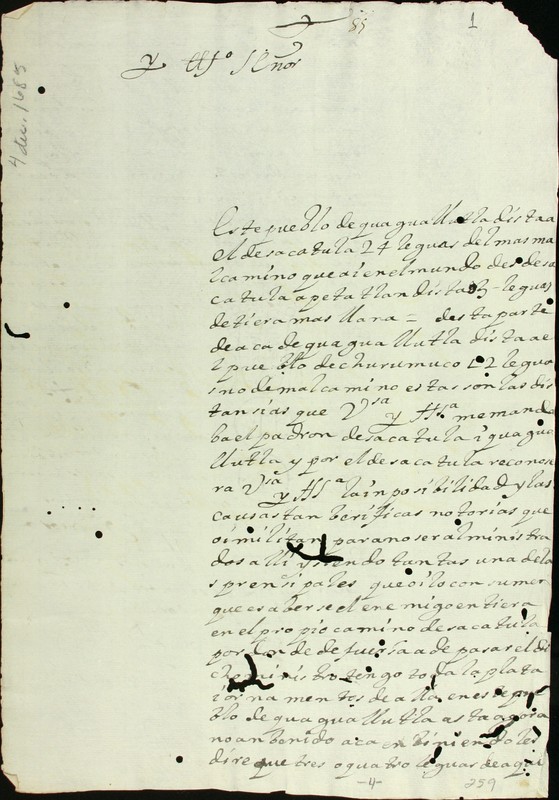 85 1
y Illo señor
4 dec. 1685
Este pueblo de quaguallutla dista a
el de sacatula 24 leguas del mas ma
l camino que ai en el mundo desde sa
catula a petatlan dista leguas
de tiera mas llana = desta parte
de aca de quaguallutla dista a e
l pueblo de churumuco 12 legua
s no de mal camino estas son las dis
tansias que Vsa y Illa me manda
ba el padron de sacatula i quagua
llutla y por el de sacatula reconose
ra Vsa y Illa la inposibilidad y las
causas tan berificas notorias que
oi militan para no ser alministra
dos alli y siendo tantas una de la
s prensipales que oi lo con sumen
que es aberse el enemigo en tiera
en el propio camino de sacatula
por donde de fuersa a de pasar el di
cho ministro tengo toda la plata
i ornamentos de alla en este pue
blo de quaguallutla asta agora
no an benido aca en biniendo les
dire que tres o quatro leguas de aqui
-4-
259